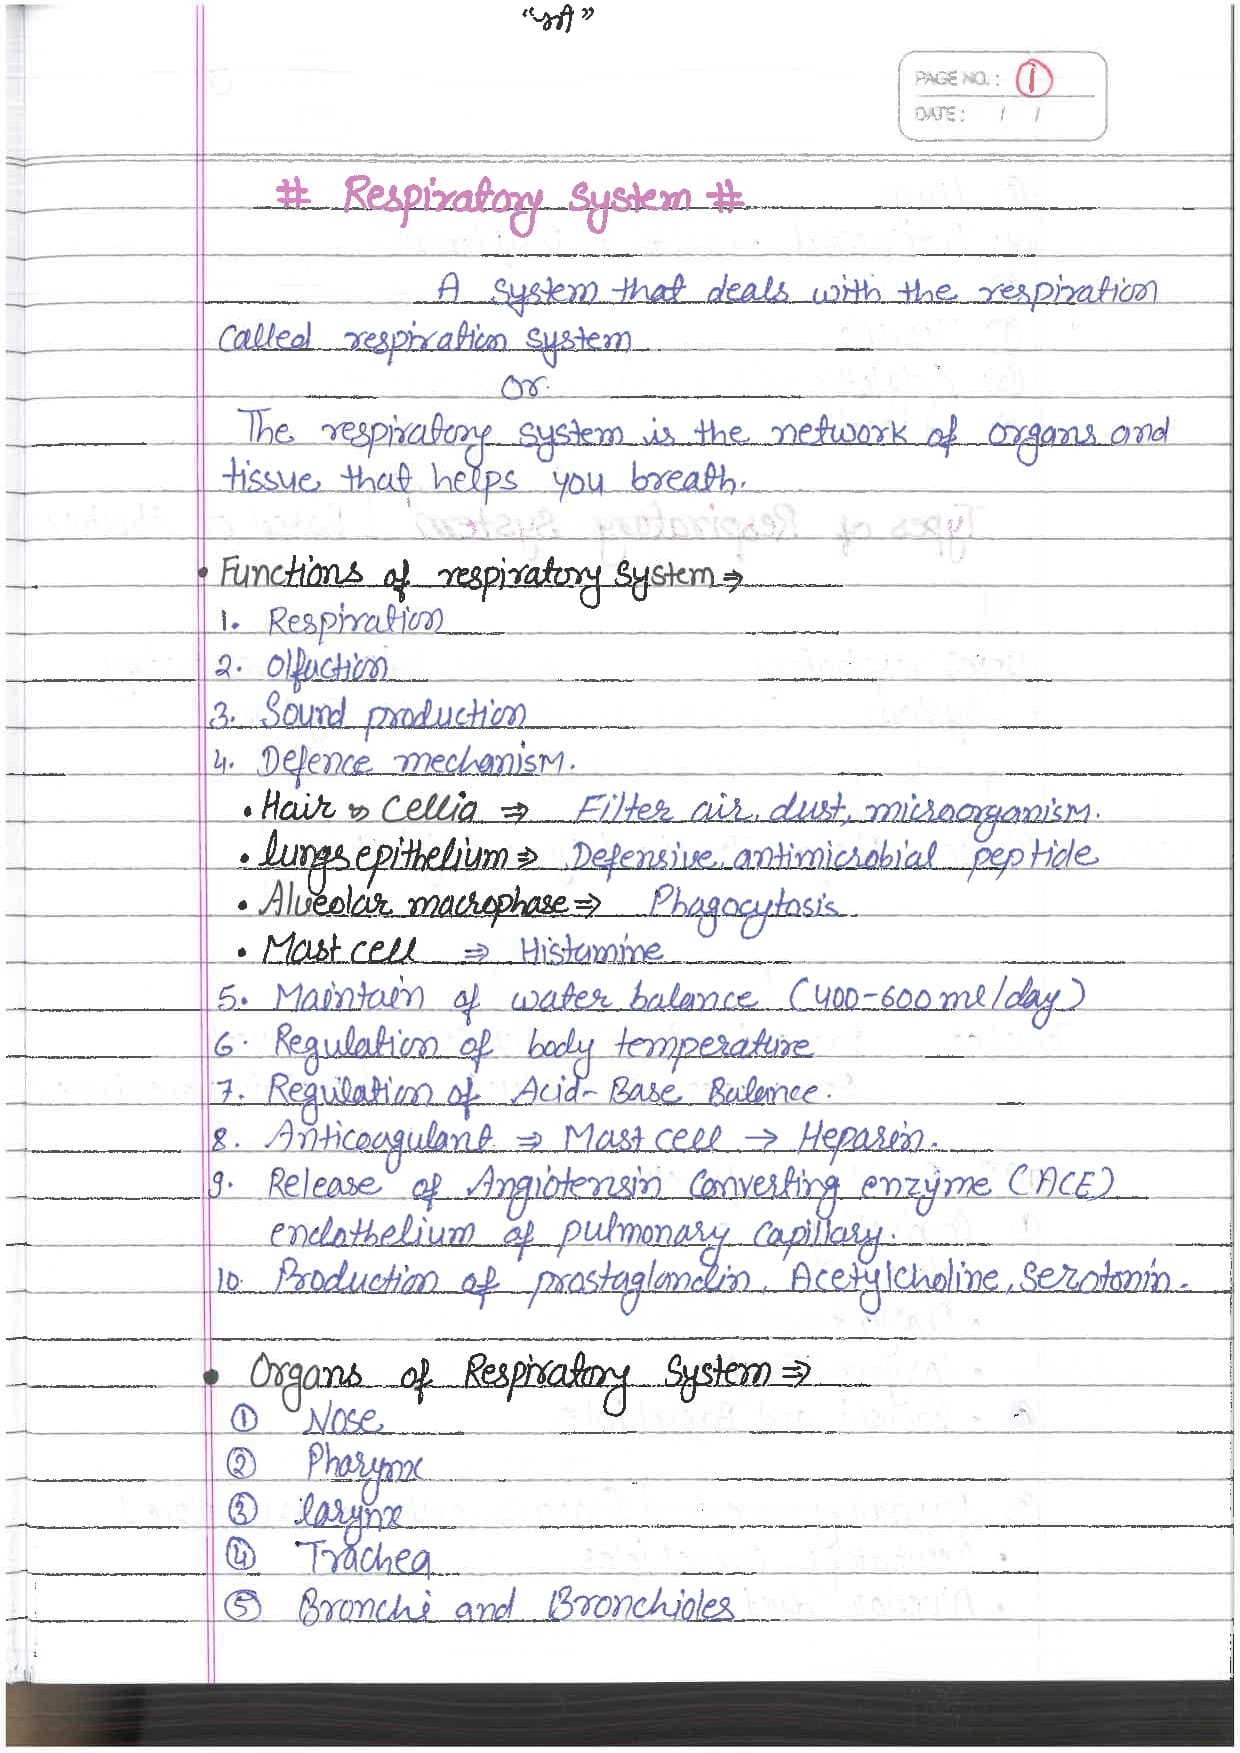 "श्री"
PAGE NO.: 1
DATE: / /
# Respiratory System #
A system that deals with the respiration
called respiration system
or
The respiratory system is the network of organs and
tissue that helps you breath.
• Functions of respiratory System ⇒
1. Respiration
2. Olfuction
3. Sound production
4. Defence mechanism.
• Hair & Cellia ⇒ Filter air, dust, microorganism.
• lungs epithelium ⇒ Defensive antimicrobial peptide
• Alveolar macrophase ⇒ Phagocytosis
• Mast cell ⇒ Histamine
5. Maintain of water balance (400-600 ml/day)
6. Regulation of body temperature
7. Regulation of Acid-Base Balance.
8. Anticoagulant ⇒ Mast cell → Heparin.
9. Release of Angiotensin Converting enzyme (ACE)
endothelium of pulmonary capillary.
10. Production of prostaglandin, Acetylcholine, Serotonin.
• Organs of Respiratory System ⇒
① Nose
② Pharynx
③ larynx
④ Trachea
⑤ Bronchi and Bronchioles